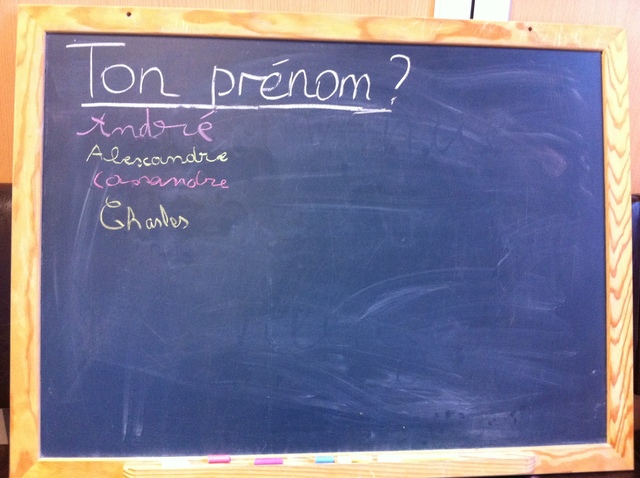 Ton prénom?
André
Alexandre
Casandre
Charles